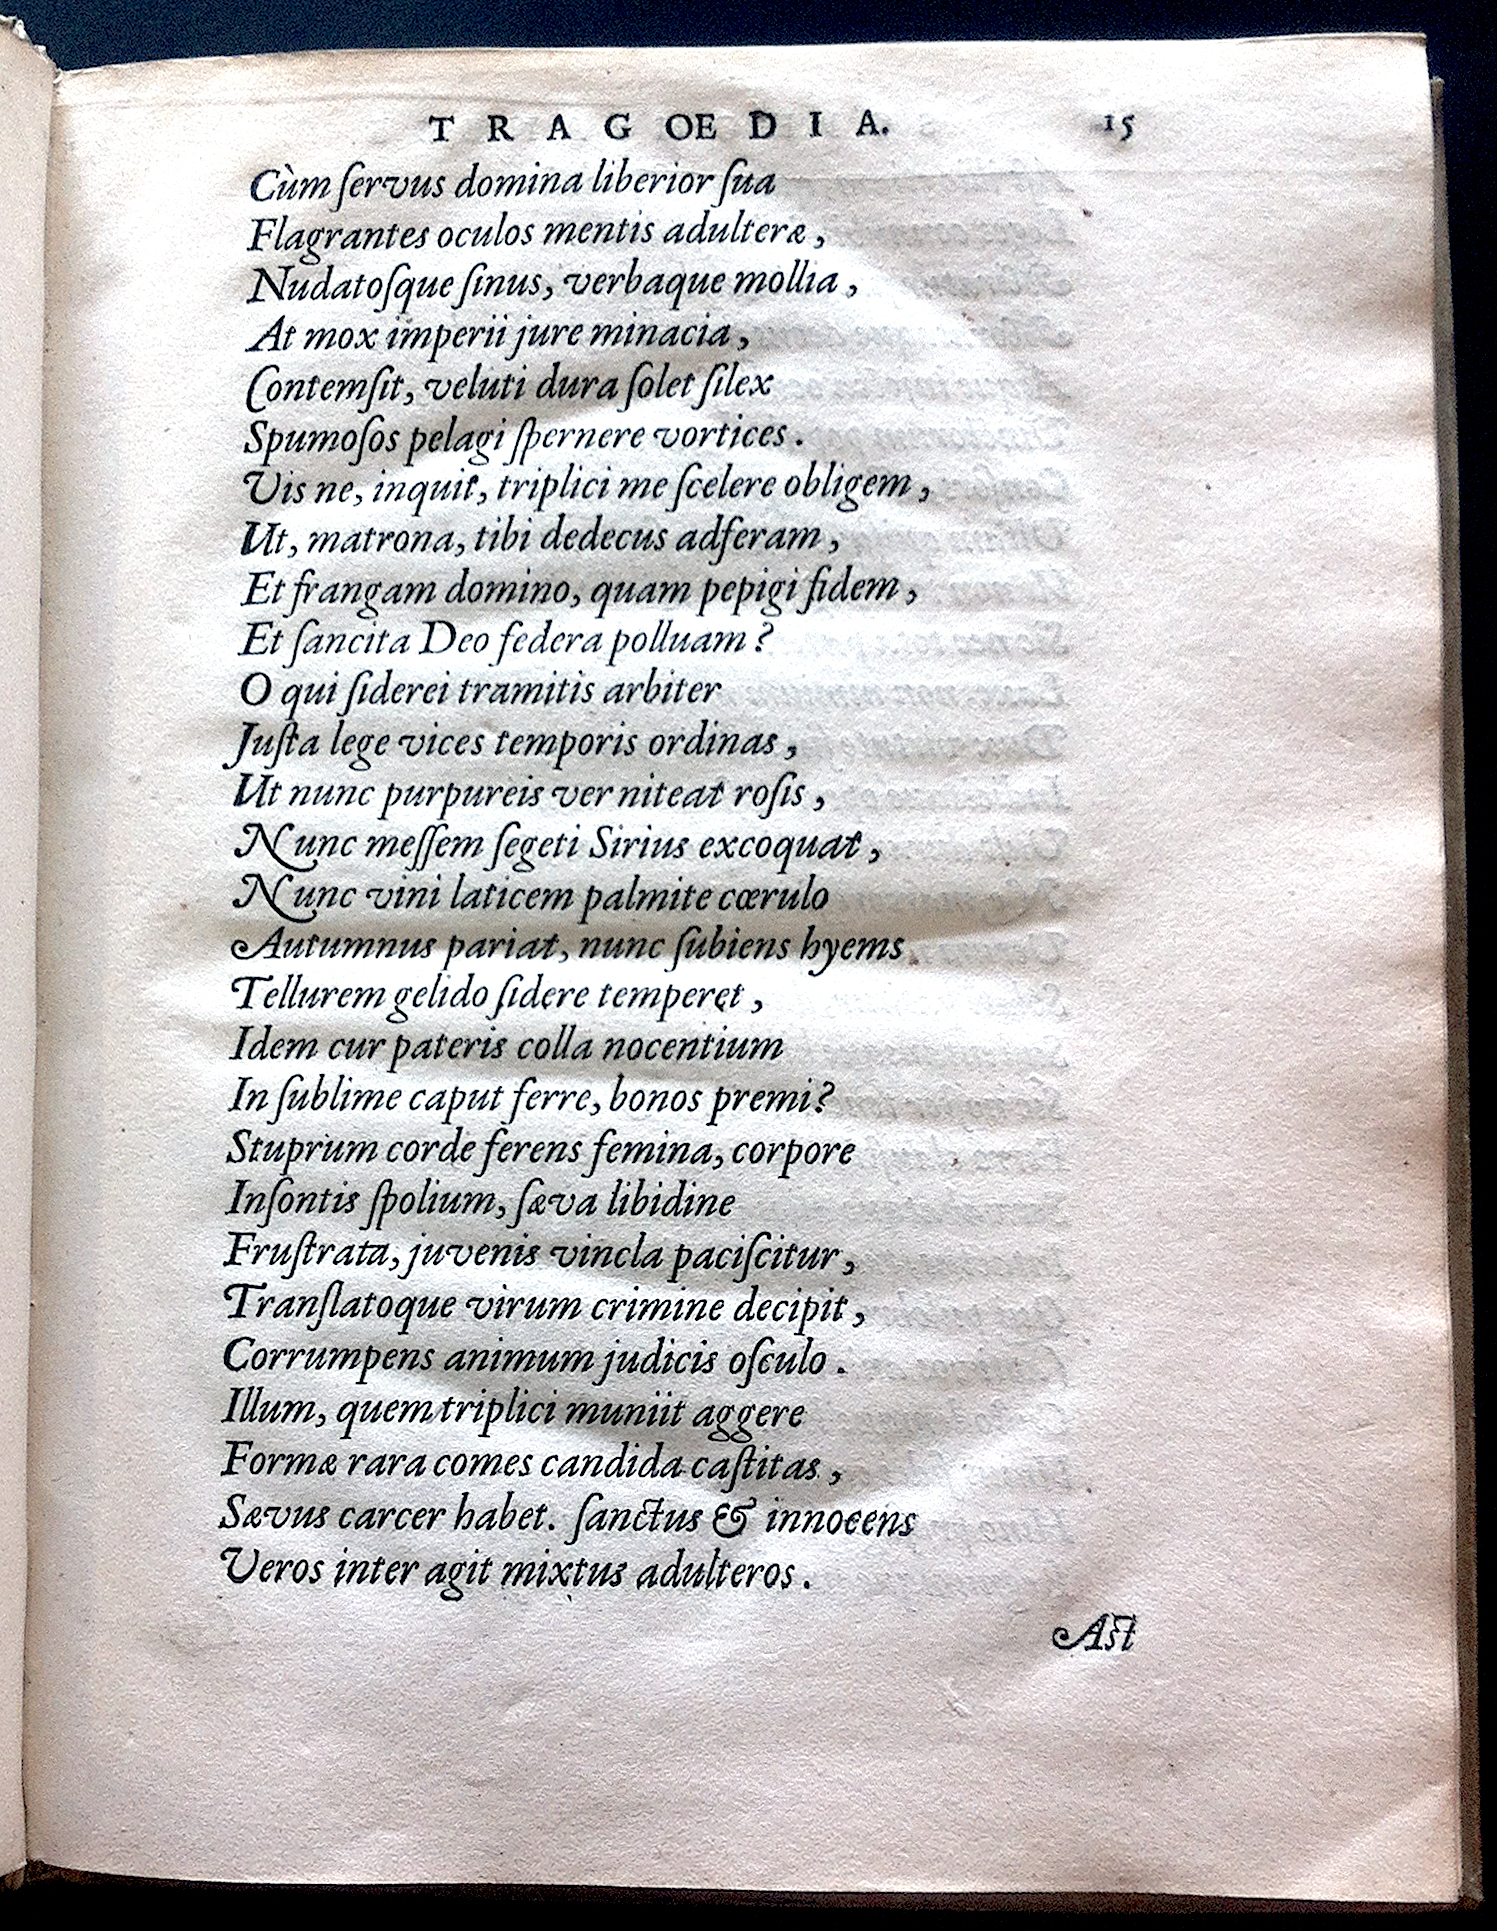 TRAGOEDIA. 15
Cùm ſervus domina liberior ſua
Flagrantes oculos mentis adulteræ,
Nudatoſque ſinus, verbaque mollia,
At mox imperii jure minacia,
Contemſit, veluti dura ſolet ſilex
Spumoſos pelagi ſpernere vortices.
Vis ne, inquit, triplici me ſcelere obligem,
Ut, matrona, tibi dedecus adferam,
Et frangam domino, quam pepigi fidem,
Et ſancita Deo federa polluam?
O qui ſiderei tramitis arbiter
Juſta lege vices temporis ordinas,
Ut nunc purpureis ver niteat roſis,
Nunc meſſem ſegeti Sirius excoquat,
Nunc vini laticem palmite cœrulo
Autumnus pariat, nunc ſubiens hyems
Tellurem gelido ſidere temperet,
Idem cur pateris colla nocentium
In ſublime caput ferre, bonos premi?
Stuprum corde ferens femina, corpore
Inſontis ſpolium, ſæva libidine
Fruſtrata, juvenis vincla paciſcitur,
Tranſlatoque virum crimine decipit,
Corrumpens animum judicis oſculo.
Illum, quem triplici muniit aggere
Formæ rara comes candida caſtitas,
Sævus carcer habet. ſanctus & innocens
Veros inter agit mixtus adulteros.
Aſt